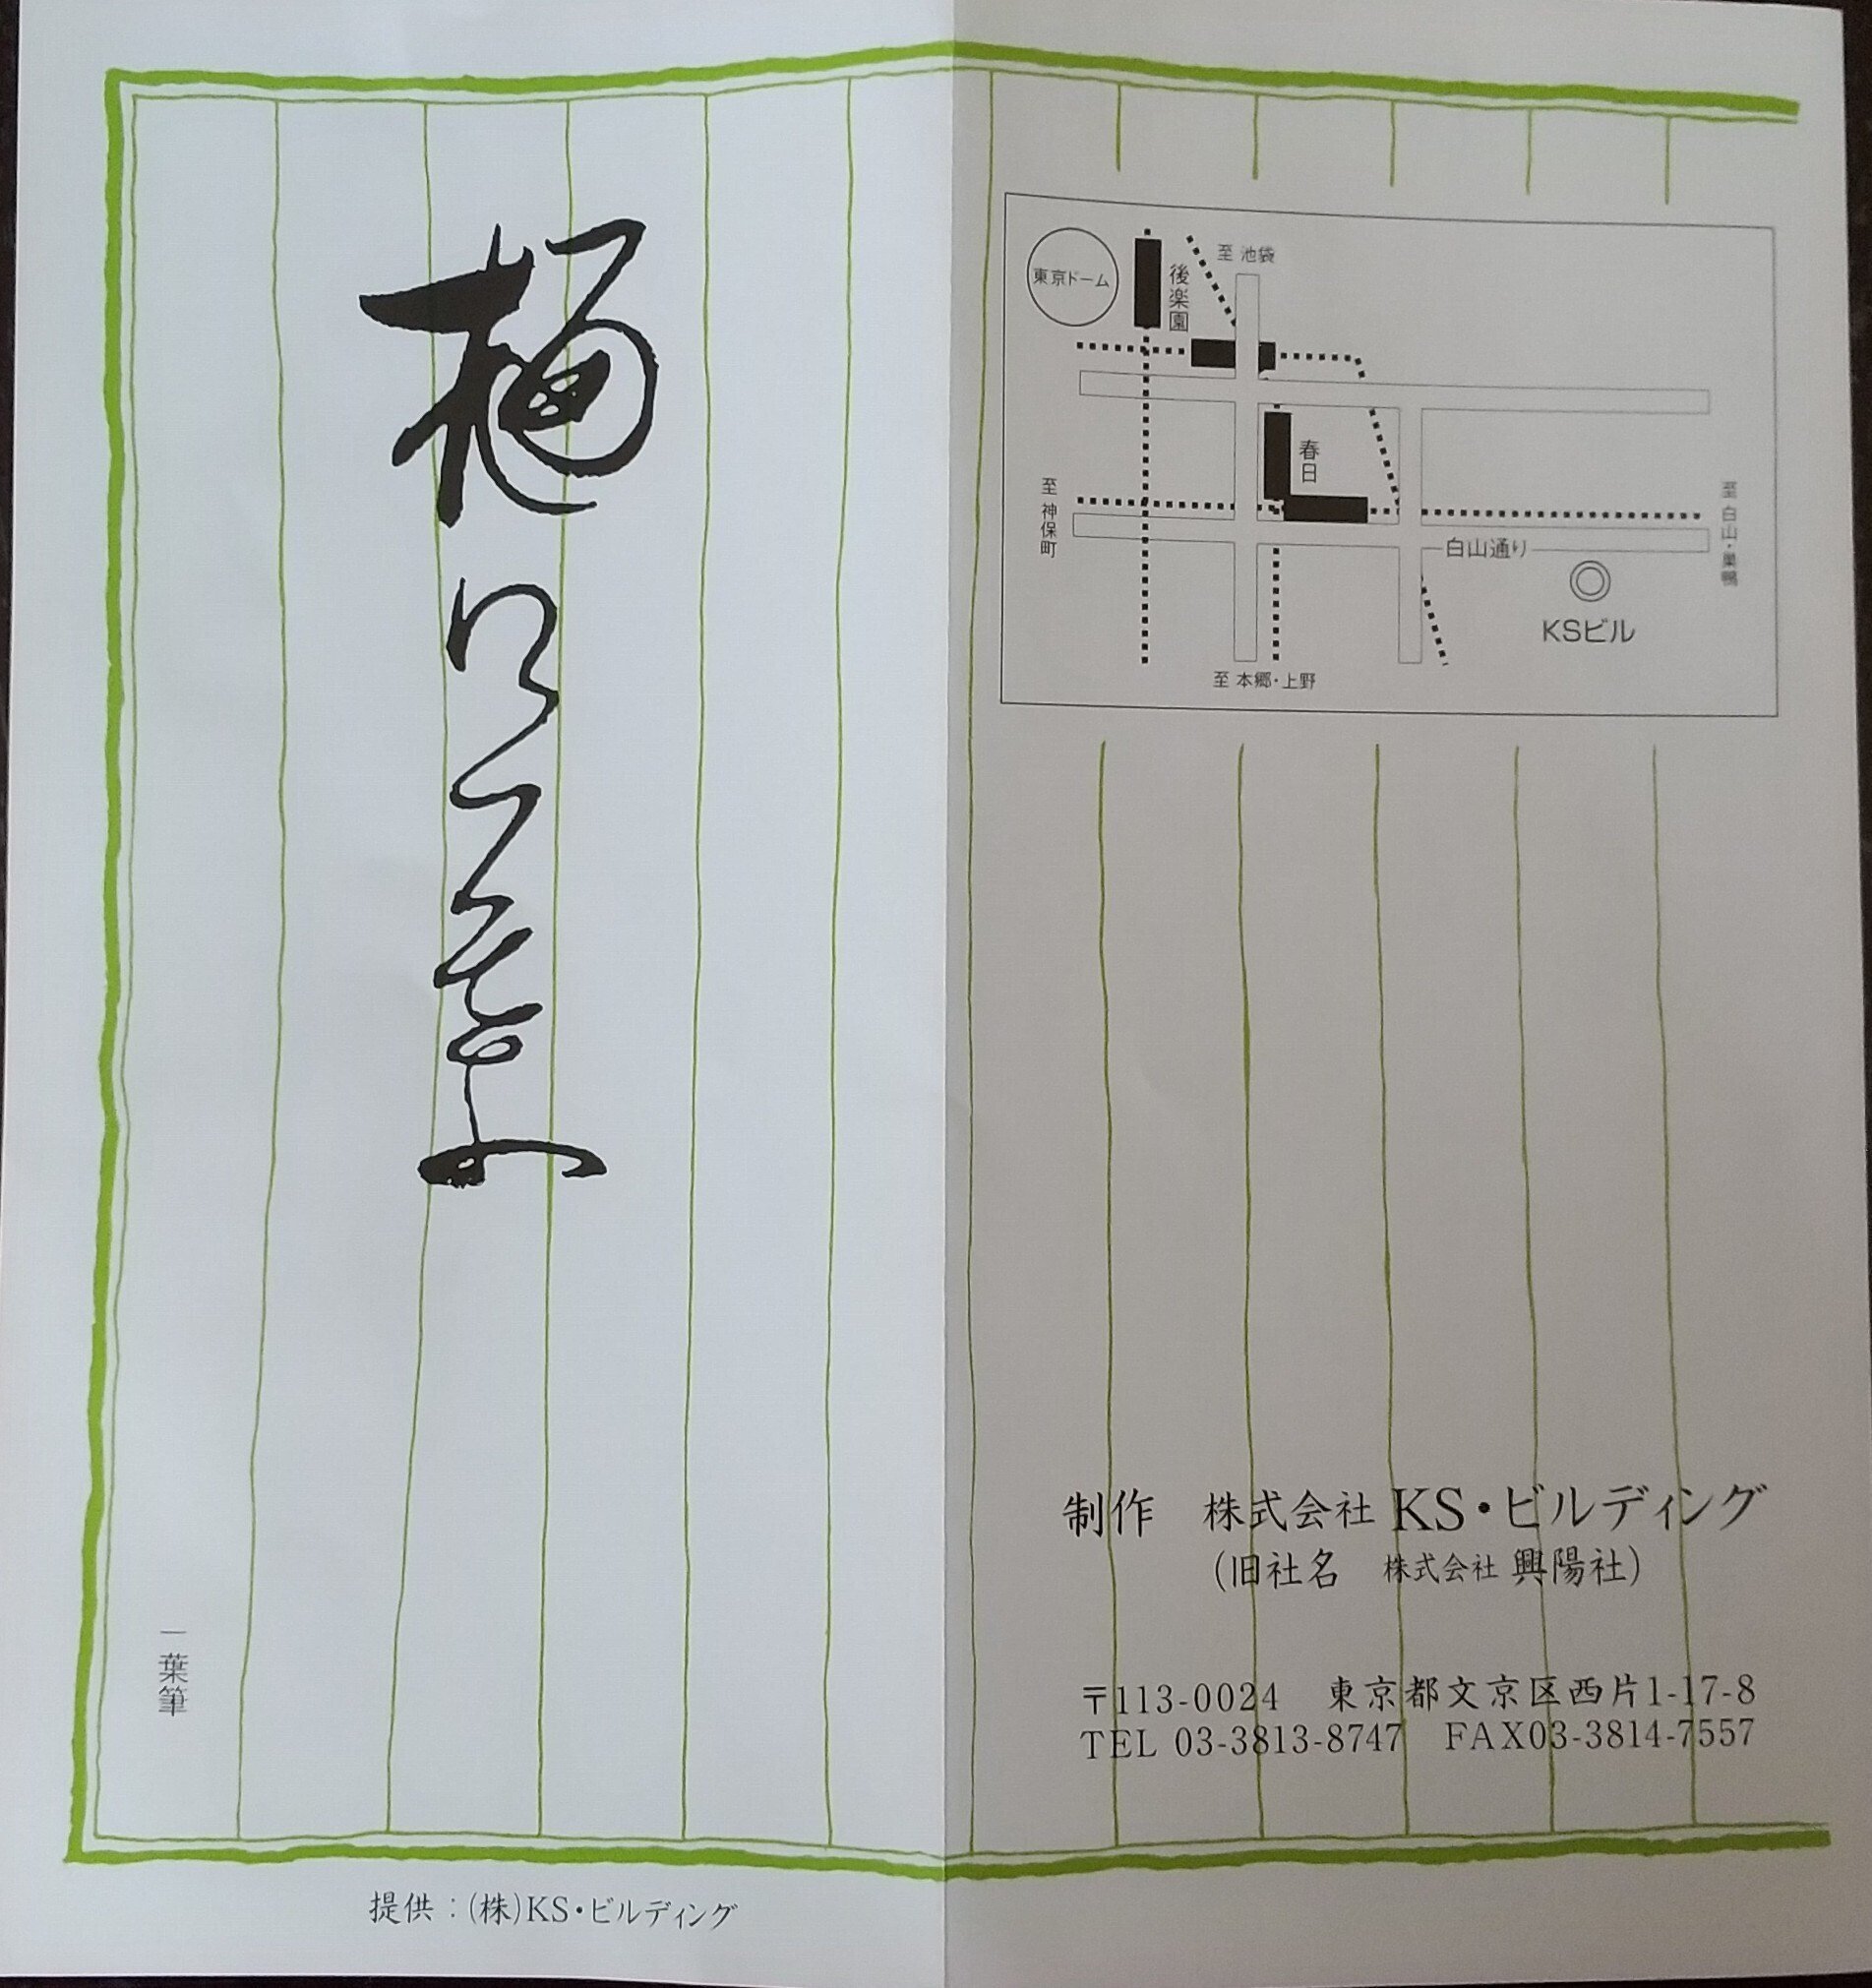 樋口一葉
一葉筆
提供：(株)KS・ビルディング
東京ドーム
後楽園
至 池袋
春日
至 神保町
至 白山・巣鴨
白山通り
KSビル
至 本郷・上野
制作　株式会社 KS・ビルディング
(旧社名　株式会社 興陽社)
〒113-0024　東京都文京区西片1-17-8
TEL 03-3813-8747　FAX03-3814-7557